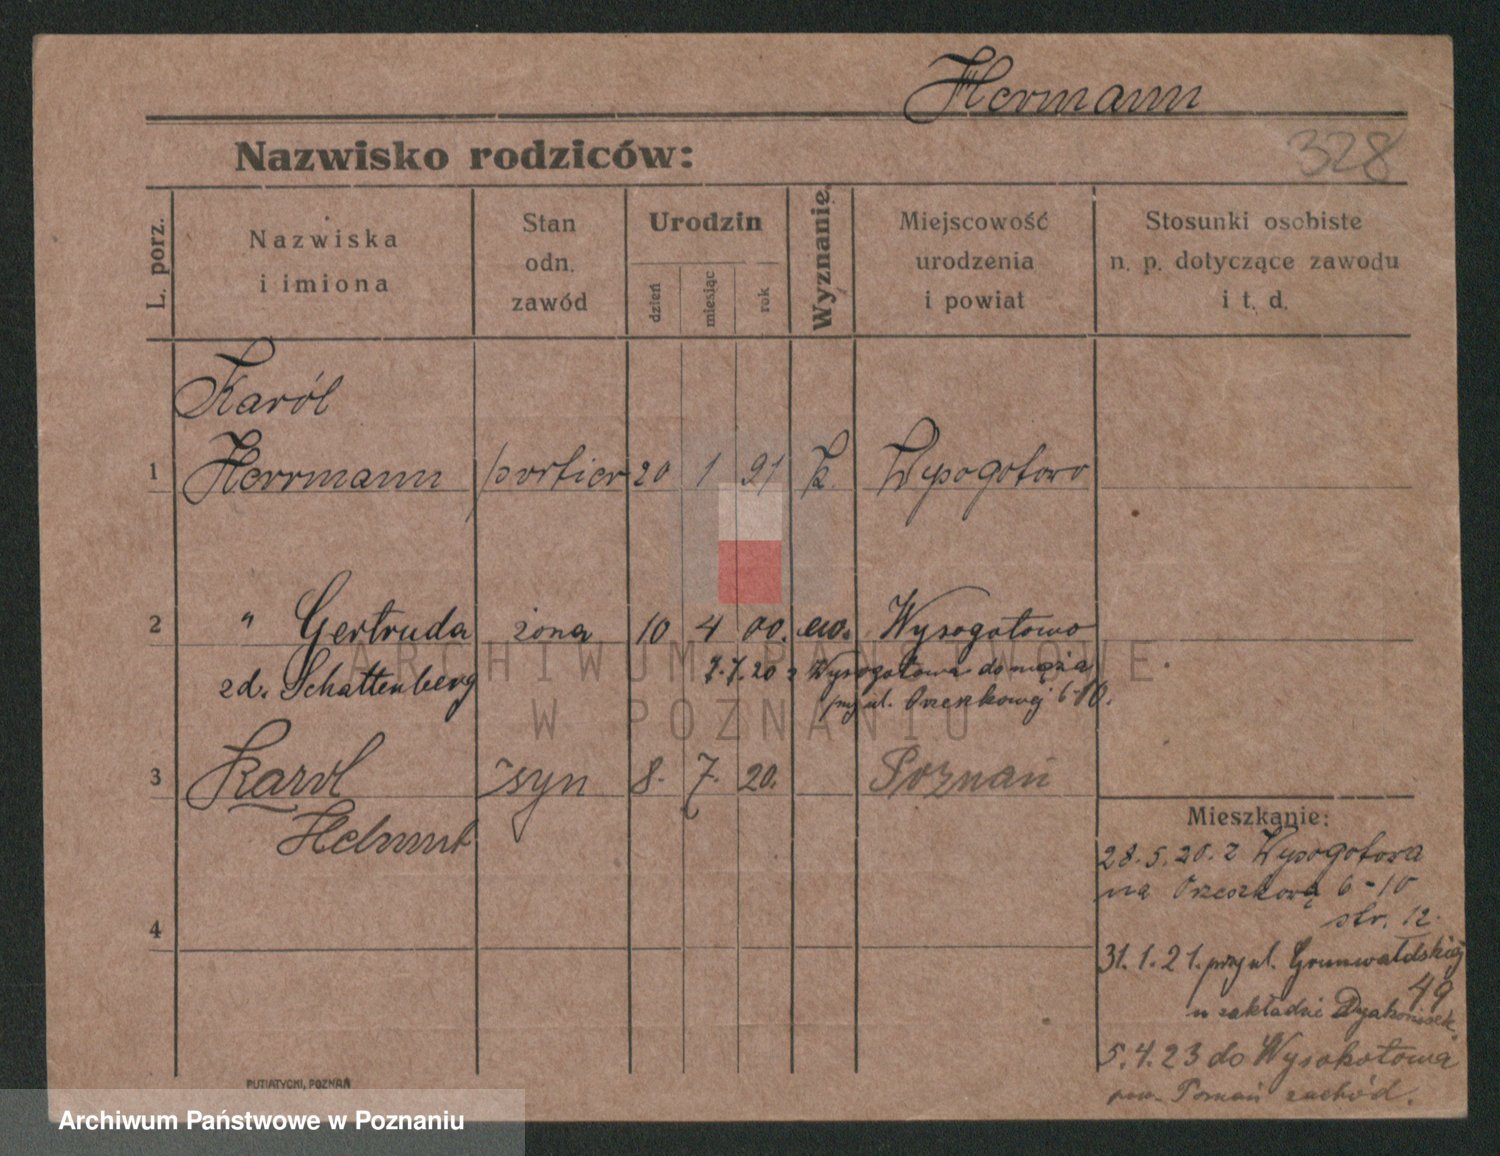 Hermann
328
Nazwisko rodziców:
L. porz.
Nazwiska
i imiona
Stan
odn.
zawód
Urodzin
dzień
miesiąc
rok
Wyznanie.
Miejscowość
urodzenia
i powiat
Stosunki osobiste
n. p. dotyczące zawodu
i t. d.
Karól
1 Herrmann portier 20 1 91 k. Wysogotowo
2 " Gertruda żona 10 4 00. ew. Wysogotowo
zd. Schattenberg 7.7.20 z Wysogotowa do męża
przy ul. Orzeszkowej 6-10.
3 Karol syn 8. 7. 20. Poznań
Helmut
Mieszkanie:
28.5.20. z Wysogotowa
na Orzeszkową 6-10
str. 12.
4
31.1.21. przy ul. Grunwaldskiej
49
w zakładzie Dyakonisek.
5.4.23 do Wysokotowa
pow. Poznań zachód.
PUTIATYCKI, POZNAŃ
ARCHIWUM PAŃSTWOWE
W POZNANIU
Archiwum Państwowe w Poznaniu